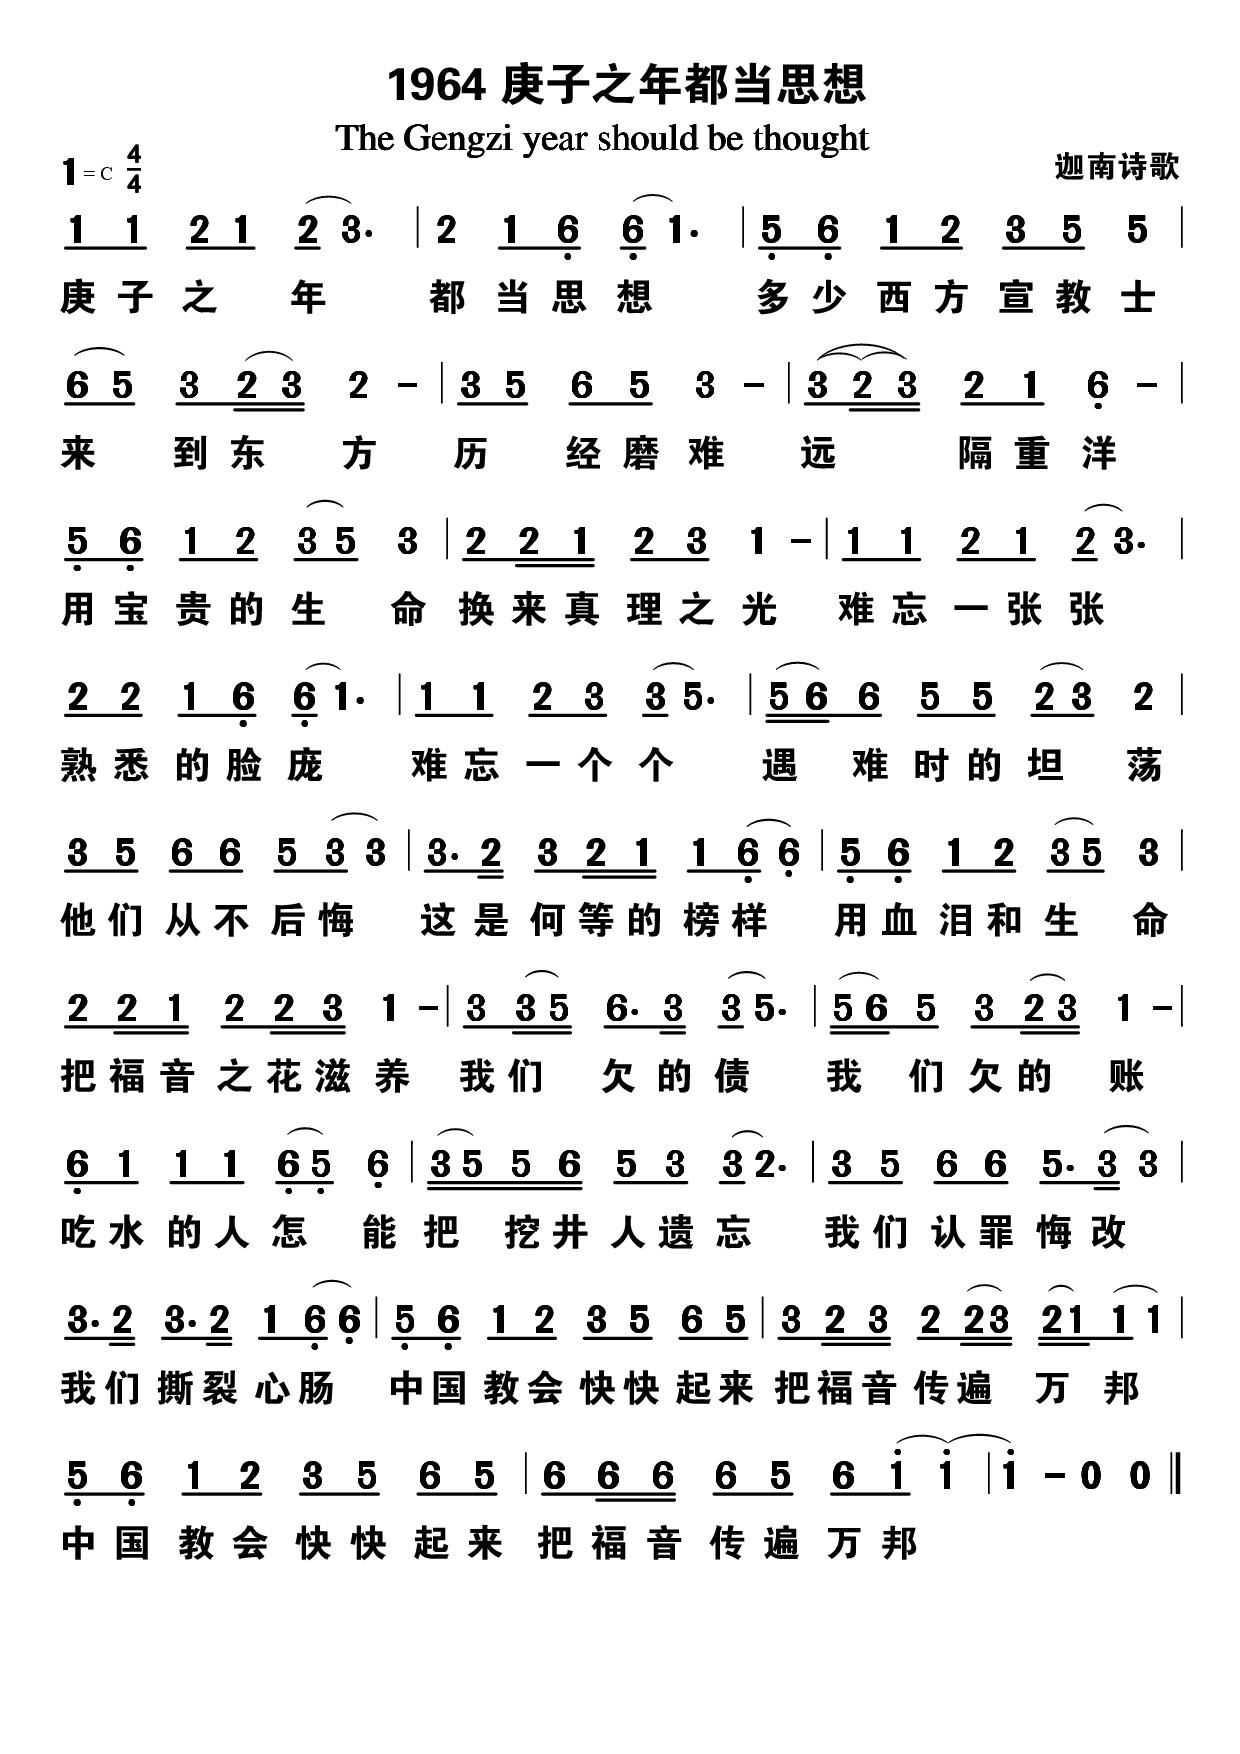 1964 庚子之年都当思想
The Gengzi year should be thought
1 = C 4/4
迦南诗歌
1 1 2 1 2 3. | 2 1 6 6 1. | 5 6 1 2 3 5 5 |
庚子之年 都当思想 多少西方宣教士
6 5 3 2 3 2 - | 3 5 6 5 3 - | 3 2 3 2 1 6 - |
来到东方 历经磨难 远隔重洋
5 6 1 2 3 5 3 | 2 2 1 2 3 1 - | 1 1 2 1 2 3. |
用宝贵的生命 换来真理之光 难忘一张张
2 2 1 6 6 1. | 1 1 2 3 3 5. | 5 6 6 5 5 2 3 2 |
熟悉的脸庞 难忘一个个 遇难时的坦荡
3 5 6 6 5 3 3 | 3. 2 3 2 1 1 6 6 | 5 6 1 2 3 5 3 |
他们从不后悔 这是何等的榜样 用血泪和生命
2 2 1 2 2 3 1 - | 3 3 5 6. 3 3 5. | 5 6 5 3 2 3 1 - |
把福音之花滋养 我们欠的债 我们欠的账
6 1 1 1 6 5 6 | 3 5 5 6 5 3 3 2. | 3 5 6 6 5. 3 3 |
吃水的人怎能 把挖井人遗忘 我们认罪悔改
3. 2 3. 2 1 6 6 | 5 6 1 2 3 5 6 5 | 3 2 3 2 2 3 2 1 1 1 |
我们撕裂心肠 中国教会快快起来 把福音传遍万邦
5 6 1 2 3 5 6 5 | 6 6 6 6 5 6 1 1 | 1 - 0 0 ‖
中国教会快快起来 把福音传遍万邦